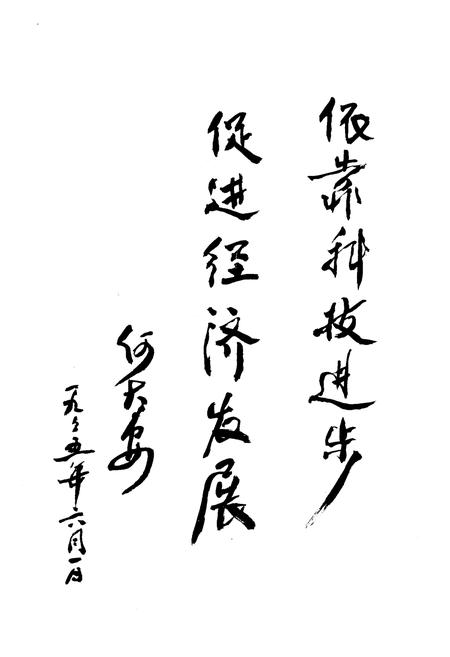 依靠科技进步
促进经济发展
一九々五年六月一日